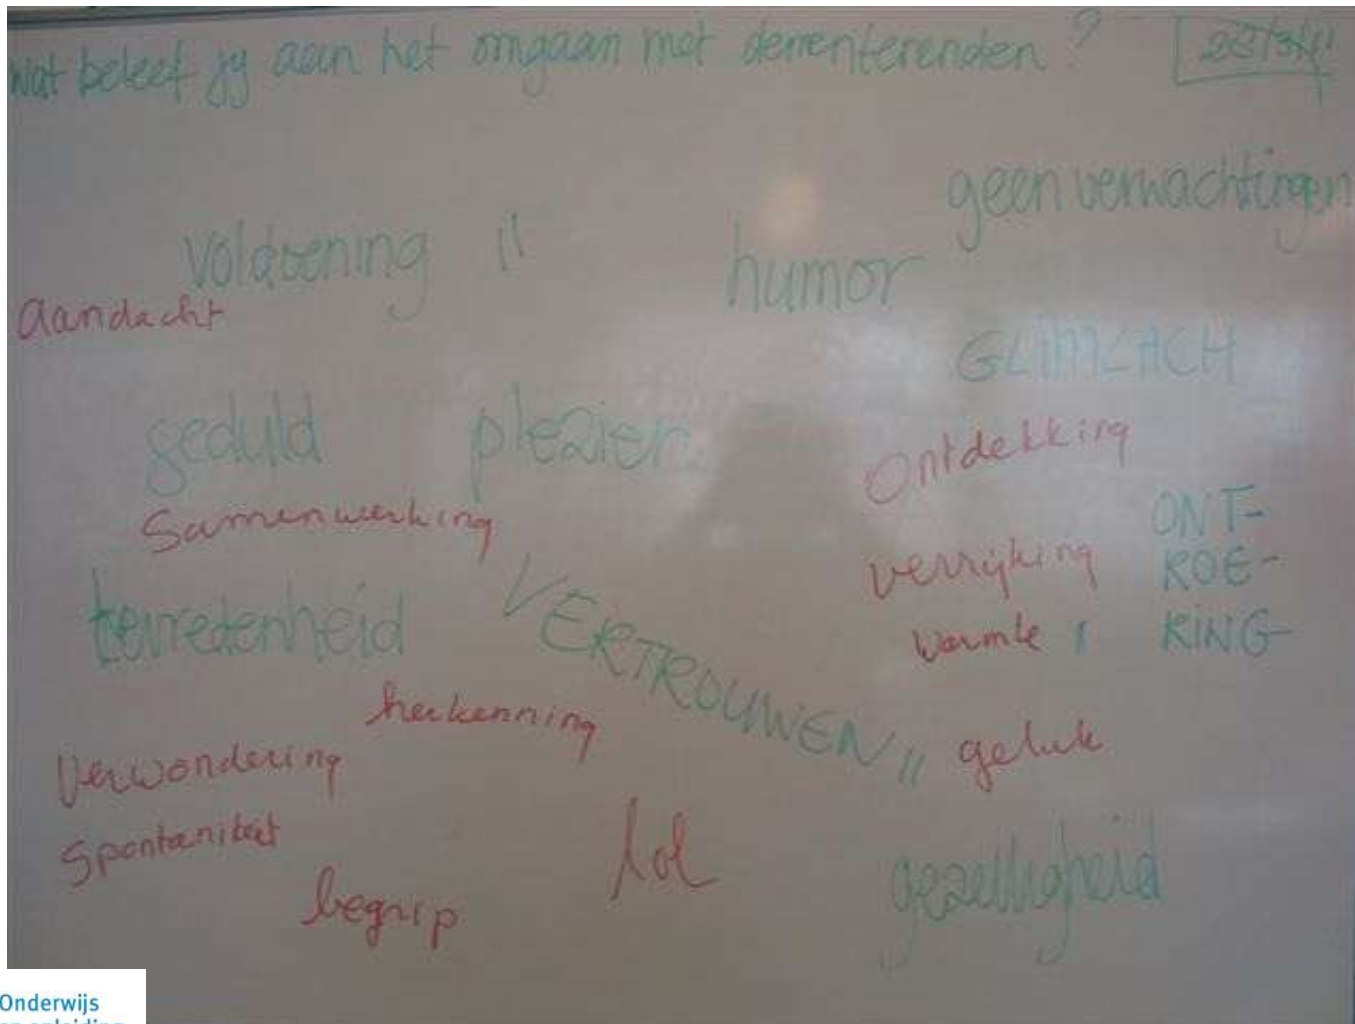 Wat beleef jij aan het omgaan met dementerenden?
geen verwachtingen
voldoening "
humor
Aandacht
GLIMLACH
geduld plezier
Ontdekking
Samenwerking
ONT-
verrijking ROE-
tevredenheid
VERTROUWEN "
warmte ı RING-
herkenning
geluk
Verwondering
Spontaniteit
lol
gezelligheid
begrip
Onderwijs